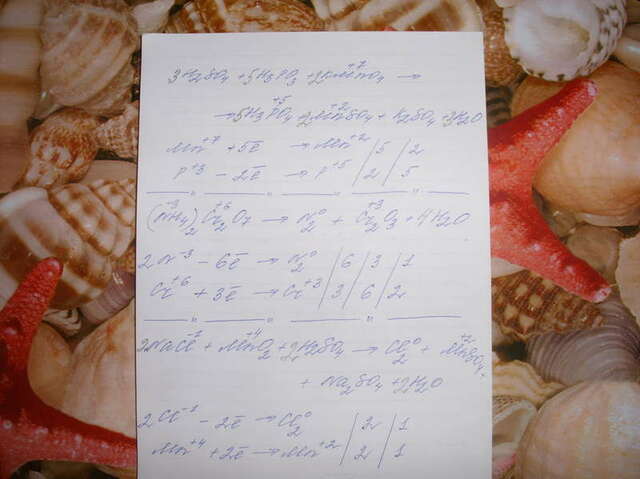 3H₂SO₄ + 5H₃PO₃ + 2KMn⁺⁷O₄ →
→ 5H₃P⁺⁵O₄ + 2Mn⁺²SO₄ + K₂SO₄ + 3H₂O
Mn⁺⁷ + 5ē → Mn⁺² / 5 / 2
P⁺³ − 2ē → P⁺⁵ / 2 / 5
— " — " — " — " —
(N⁻³H₄)₂Cr₂⁺⁶O₇ → N₂⁰ + Cr₂⁺³O₃ + 4H₂O
2N⁻³ − 6ē → N₂⁰ / 6 / 3 / 1
Cr⁺⁶ + 3ē → Cr⁺³ / 3 / 6 / 2
— " — " — " —
2NaCl⁻¹ + Mn⁺⁴O₂ + 2H₂SO₄ → Cl₂⁰ + Mn⁺²SO₄ +
+ Na₂SO₄ + 2H₂O
2Cl⁻¹ − 2ē → Cl₂⁰ / 2 / 1
Mn⁺⁴ + 2ē → Mn⁺² / 2 / 1